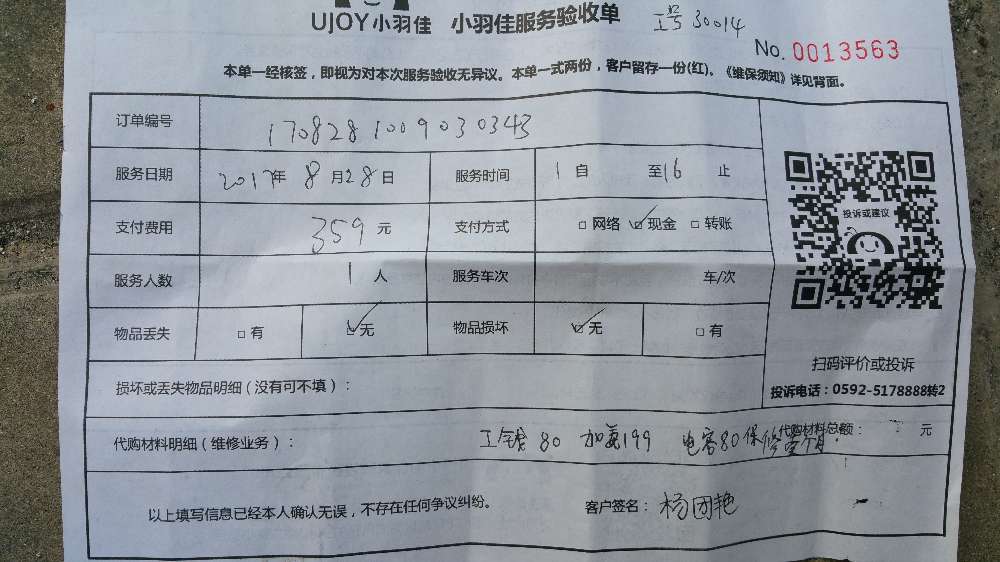 UJOY小羽佳 小羽佳服务验收单 工号 30014
No. 0013563
本单一经核签，即视为对本次服务验收无异议。本单一式两份，客户留存一份(红)。《维保须知》详见背面。
订单编号 1708281009030343
服务日期 2017年 8月28日 服务时间 1 自 至16 止
支付费用 359 元 支付方式 □ 网络 ☑ 现金 □ 转账
服务人数 1 人 服务车次 车/次
物品丢失 □ 有 ☑ 无 物品损坏 ☑ 无 □ 有
投诉或建议
扫码评价或投诉
投诉电话：0592-5178888转2
损坏或丢失物品明细（没有可不填）：
代购材料明细（维修业务）： 工钱80 加氟199 电容80保修 个月 代购材料总额： 元
以上填写信息已经本人确认无误，不存在任何争议纠纷。 客户签名： 杨团艳